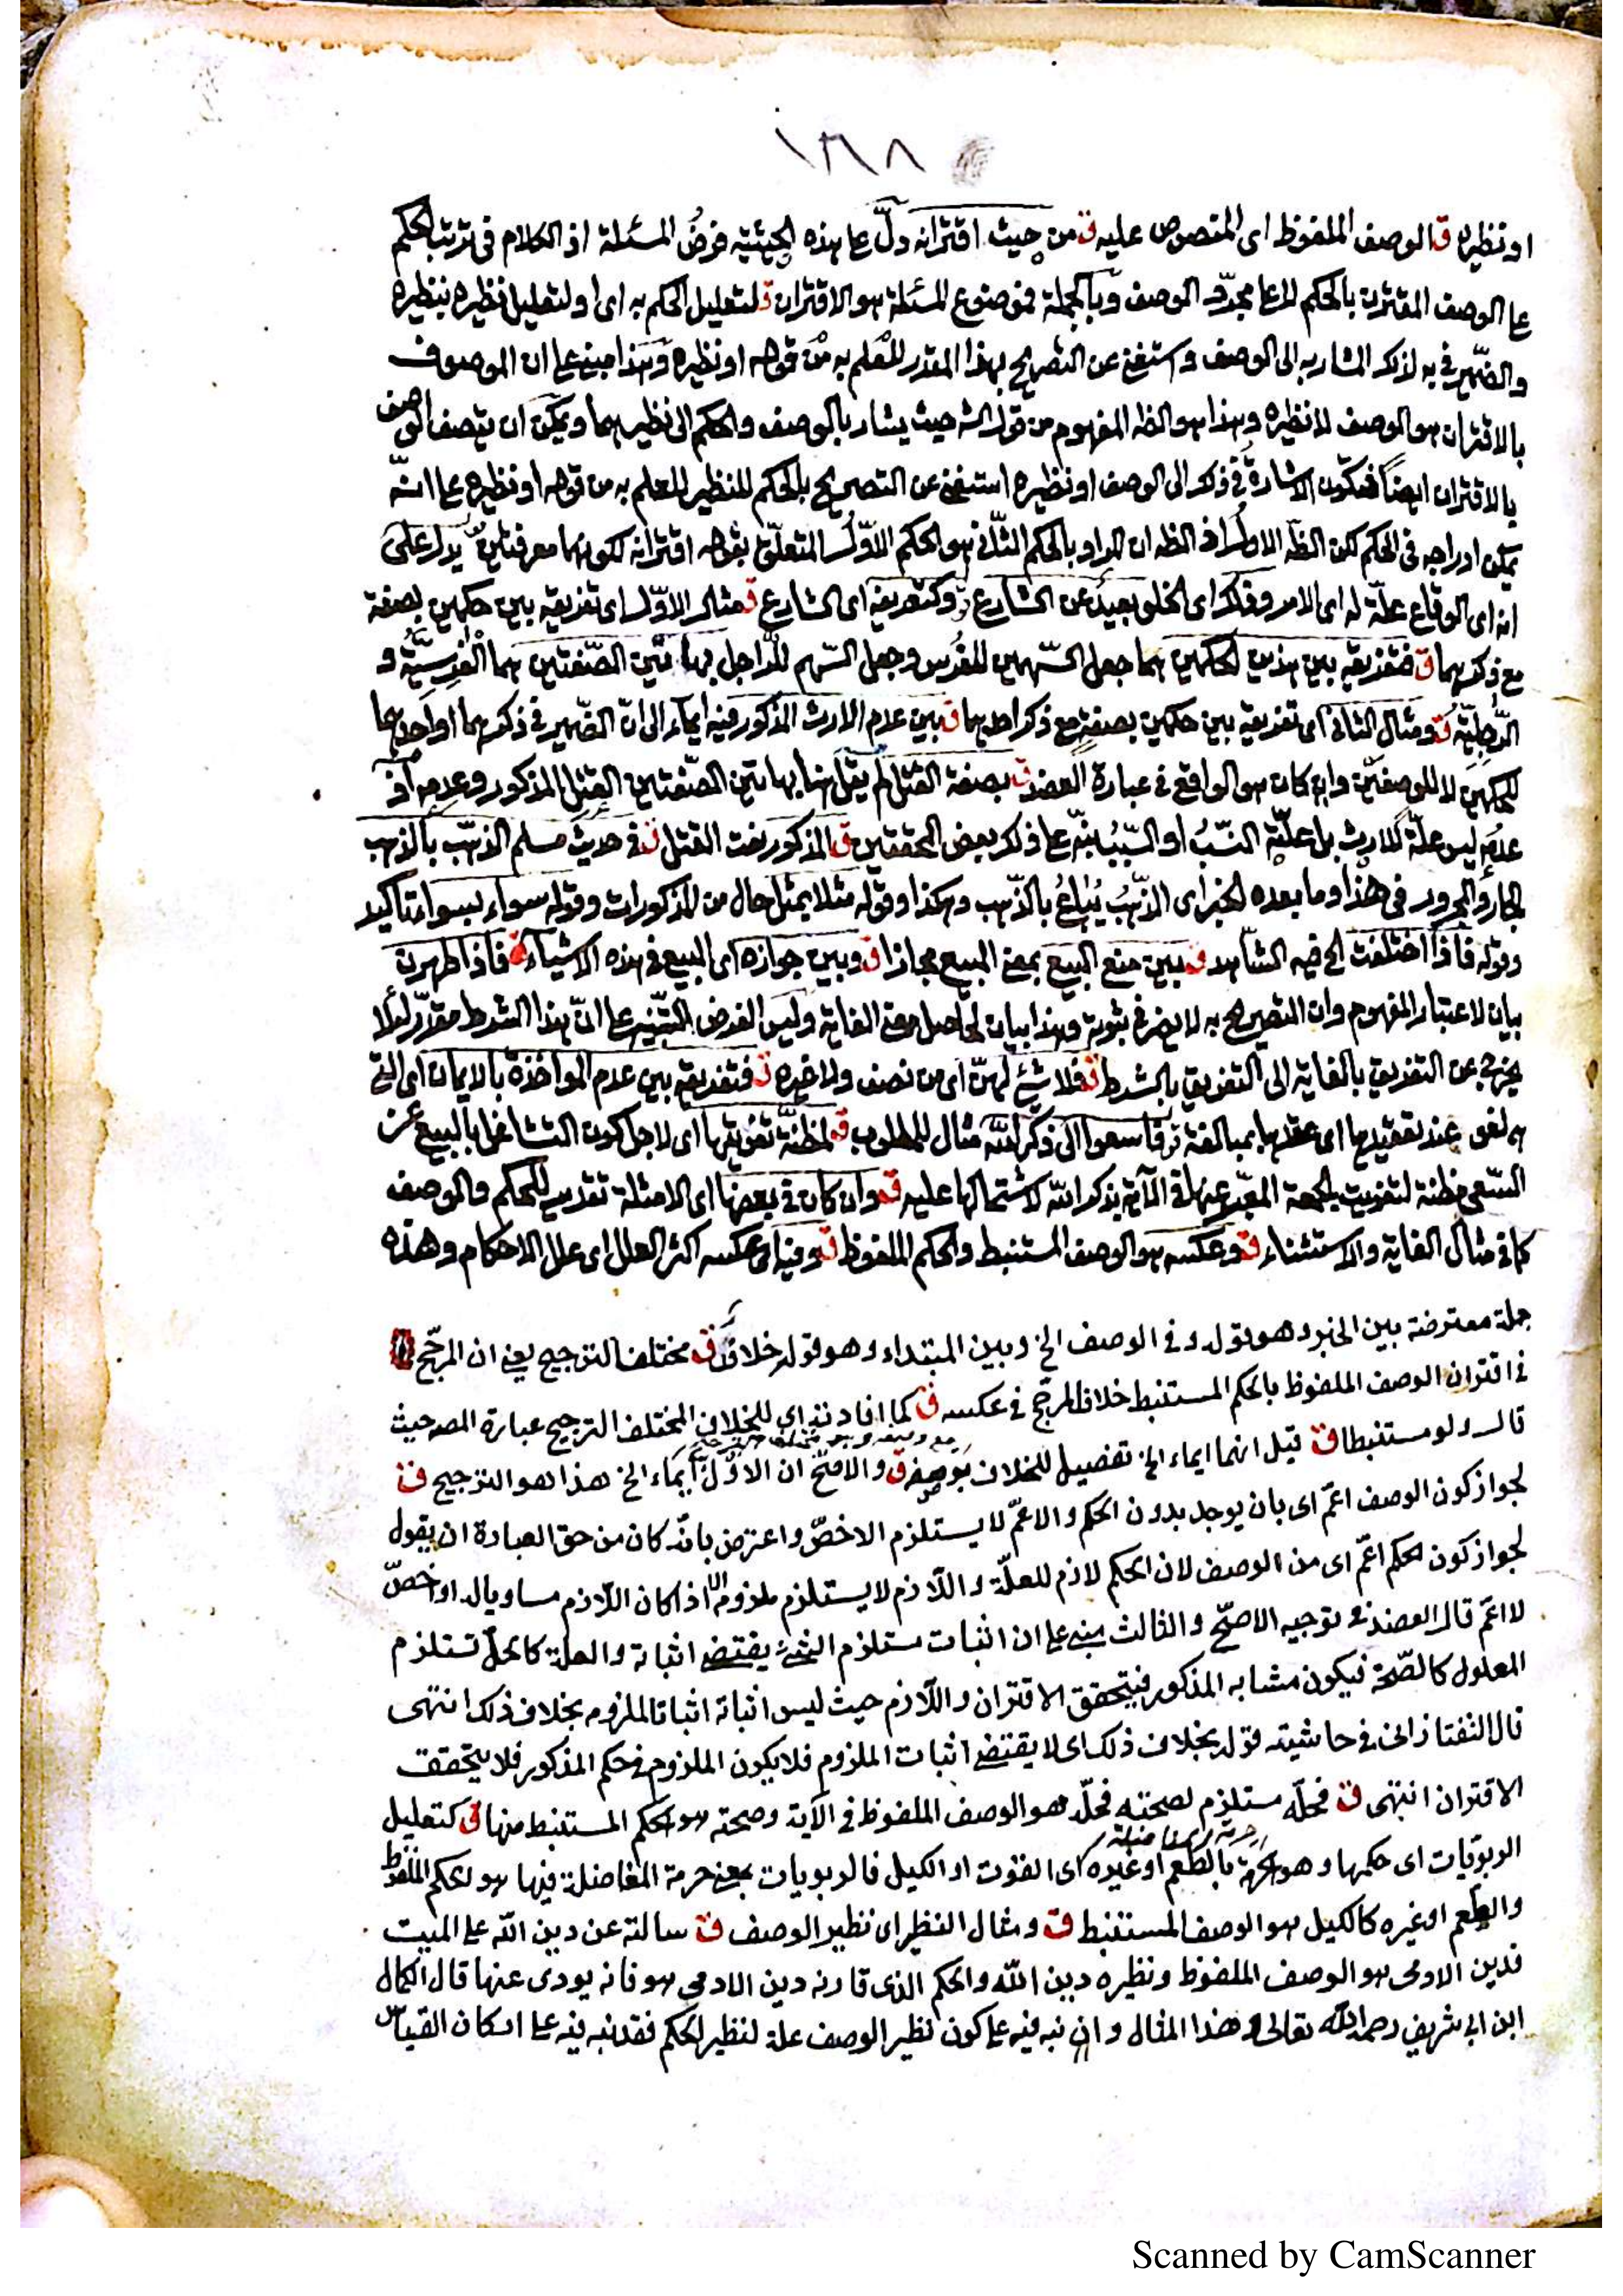 ١٣٨
او نظيره ق الوصف الملفوظ اى المنصوص عليه ق من حيث اقترانه دلّ عا هذه الحيثية فرضُ المسئلة اذ الكلام فى ترتب الحكم
عا الوصف المقترن بالحكم لا عا مجرّد الوصف وبالجملة فموضوع المسئلة هو الاقتران ق لتعليل الحكم به اى او لتعليل نظيره بنظيره
والضّمير فى به لذلك المشار به الى الوصف واستغنى عن التصريح بهذا المقدر للعلم به من قوله او نظيره وهذا مبنى عا ان الموصوف
بالاقتران هو الوصف لا نظيره وهذا هو الظه المفهوم من قول الشه حيث يشار بالوصف والحكم الى نظيرهما ويمكن ان يتصف الوصف
بالاقتران ايضاً فتكون الاشارة فى ذكر الى الوصف او نظيره استغنى عن التصريح بالحكم للنظير للعلم به من قوله او نظيره عا انّه
يمكن ادراجه فى الحكم لكن الظه الاول اذ الظه ان المراد بالحكم الثانى هو الحكم الاوّل المتعلّق بقوله اقترانه لكونهما معرفتين يدل على
انه اى الوقاع علّة له اى الامر وذلك اى الخلو بعيد عن الشارع ق وكتفريقه اى الشارع ق مثال الاوّل اى تفريقه بين حكمين بصفة
مع ذكرهما ق فتفريقه بين هذين الحكمين هما جعل السّهمين للفرس وجعل السّهم للرّاجل بهاتين الصّفتين هما الفرسيّة و
الرّجليّة ق ومثال الثانى اى تفريقه بين حكمين بصفةٍ مع ذكر احدهما ق بين عدم الارث المذكور فيه ايماء الى انّ الضّمير فى ذكرهما او احدهما
للحكمين لا للوصفين وان كان هو الواقع فى عبارة العضد ق بصفة القتل لم يقل هنا بهاتين الصّفتين القتل المذكور وعدمه اذ
عدمه ليس علّة للارث بل علّيّة النّسب او السّبب نبّه عا ذلك بعض المحققين ق المذكور نعت القتل ق فى حديث مسلم الذهب بالذهب
الجار والمجرور فى هذا وما بعده الخبر اى الذّهبُ يُباعُ بالذّهب وهكذا وقوله مثلا بمثل حال من المذكورات وقوله سواء بسواء تاكيد
وقوله فاذا اختلفت الخ فيه الشاهد ق بين منع البيع بمعنى المبيع مجازا ق وبين جوازه اى البيع فى هذه الاشياء ق فاذا طهرن
بيان لاعتبار المفهوم وان التصريح به لا يضر فى ثبوته وهذا بيان لحاصل معنى الغاية وليس الغرض التنبيه عا انّ هذا الشرط مقدّر لئلا
يخرج عن التفريق بالغاية الى التفريق بالشرط ق فلا شئ لهنّ اى من نصف ولا غيره ق فتفريقه بين عدم المواخذة بالايمان اى التى
هى لغو عند تعقيدها اى عقدها بمبالغة ق فاسعوا الى ذكر الله مثال للمطلوب ق لمظنّة تفويتها اى لاجل كون التشاغل بالبيع عن
السّعى مظنة لتفويت الجمعة المعبّر عنها فى الآية بذكر الله لاشتمالها عليه ق وان كان فى بعضها اى الامثلة تقديم للحكم والوصف
كما فى مثال الغاية والاستثناء ق وعكسه هو الوصف المستنبط والحكم الملفوظ ق وفيه اى عكسه اكثر العلل اى علل الاحكام وهذه
جملة معترضة بين الخبر وهو قوله و فى الوصف الخ وبين المبتداء وهو قوله خلاف ق مختلف الترجيح يعنى ان المرجّح
فى اقتران الوصف الملفوظ بالحكم المستنبط خلاف المرجّح فى عكسه ق كما افادته اى للخلاف المختلف الترجيح عبارة المصه حيث
قال ولو مستنبطا ق قيل انهما ايماء الخ تفصيل للخلاف بوصفه ق والاصحّ ان الاوّل ايماء الخ هذا هو الترجيح ق
لجواز كون الوصف اعمّ اى بان يوجد بدون الحكم والاعمّ لا يستلزم الاخصّ واعترض بانّه كان من حق العبارة ان يقول
لجواز كون الحكم اعمّ اى من الوصف لان الحكم لازم للعلّة واللّازم لا يستلزم ملزومه الا اذا كان اللّازم مساويا له او اخصّ
لا اعمّ قال العضد فى توجيه الاصحّ والثالث مبنى عا ان اثبات مستلزم الشئ يقتضى اثباته والعلة كالحلّ تستلزم
المعلول كالصّحة فيكون مشابه المذكور فيتحقق الاقتران واللّازم حيث ليس اثباته اثباتا لملزومه بخلاف ذلك انتهى
قال التفتازانى فى حاشيته قوله بخلاف ذلك اى لا يقتضى اثبات الملزوم فلا يكون الملزوم فى حكم المذكور فلا يتحقق
الاقتران انتهى ق فحلّه مستلزم لصحته فحلّه هو الوصف الملفوظ فى الآية وصحته هو الحكم المستنبط منها ق كتعليل
الربويّات اى حكمها وهو بالطعم او غيره اى القوت او الكيل فالربويات بمعنى حرمة المفاضلة فيها هو الحكم الملفوظ
والطعم او غيره كالكيل هو الوصف المستنبط ق ومثال النظير اى نظير الوصف ق سالته عن دين الله عا الميت
فدين الادمى هو الوصف الملفوظ ونظيره دين الله والحكم الذى قارنه دين الادمى هو فانه يودى عنها قال الكمال
ابن ابى شريف رحمه الله تعالى وهذا المثال وان نبه فيه عا كون نظير الوصف علة لنظير الحكم فقد نبه فيه عا اركان القياس
Scanned by CamScanner